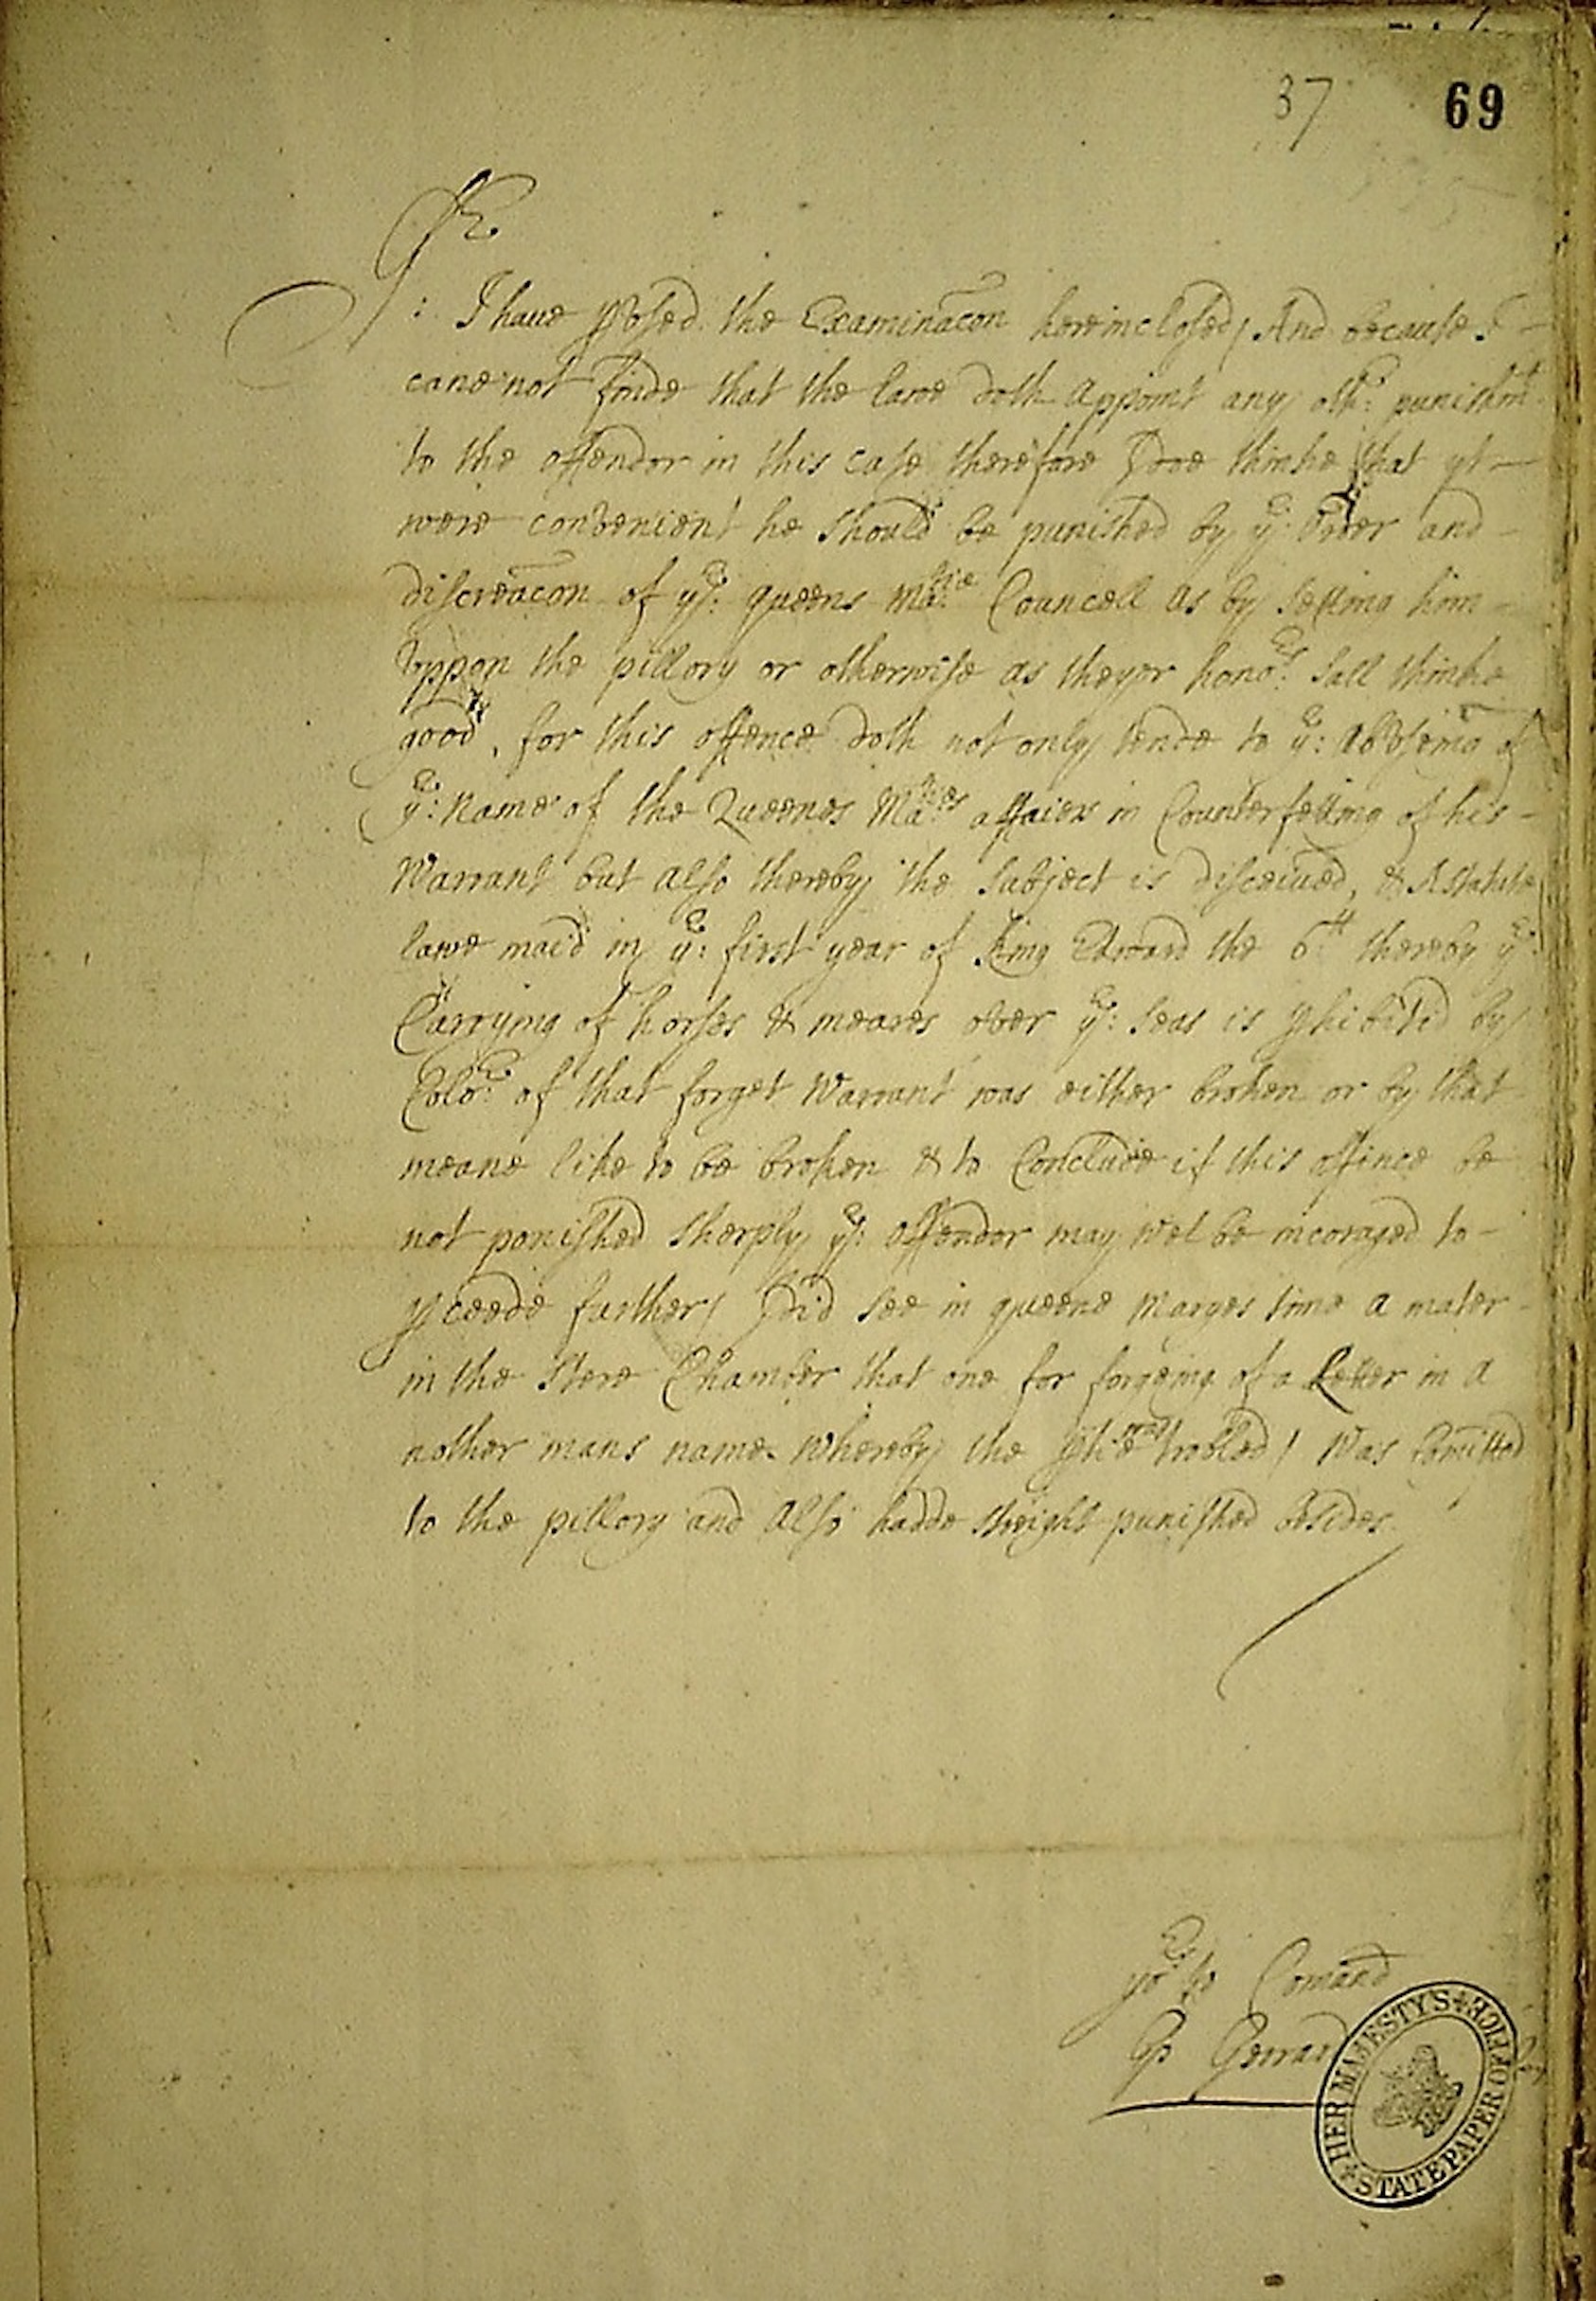 37 69
Sr.
: I haue pvsed the Examinacon hereinclosed / And because I -
cane not finde that the lawe doth appoint any othr: punishmt
to the offendor in this case therefore I doe thinke that yt -
were convenient he should be punished by ye: order and -
discreacon of ye: queens Matie Councell as by setting him -
vppon the pillory or otherwise as theyer honors sall thinke
good, for this offence doth not only tende to ye: abvseing of
ye: name of the Queenes Maties affaiers in Counterfetting of his -
Warrant but also thereby the subject is disceiued, & A statute
lawe maed in ye: first year of King Edward the 6th thereby ye:
Carrying of horses & meares over ye: seas is phibited by
Color of that forget Warrant was either broken or by that
meane like to be broken & to Conclude if this offince be
not ponished sherply ye: offendor may wel be incoraged to -
pceede further / I did see in queene maryes time a mater -
in the stere Chamber that one for forgeing of a Letter in a
nother mans name whereby the was trobled / Was Comitted
to the pillory and also hadde streight punished besides
yor to Comand
G Gerrard
HER MAJESTY'S STATE PAPER OFFICE